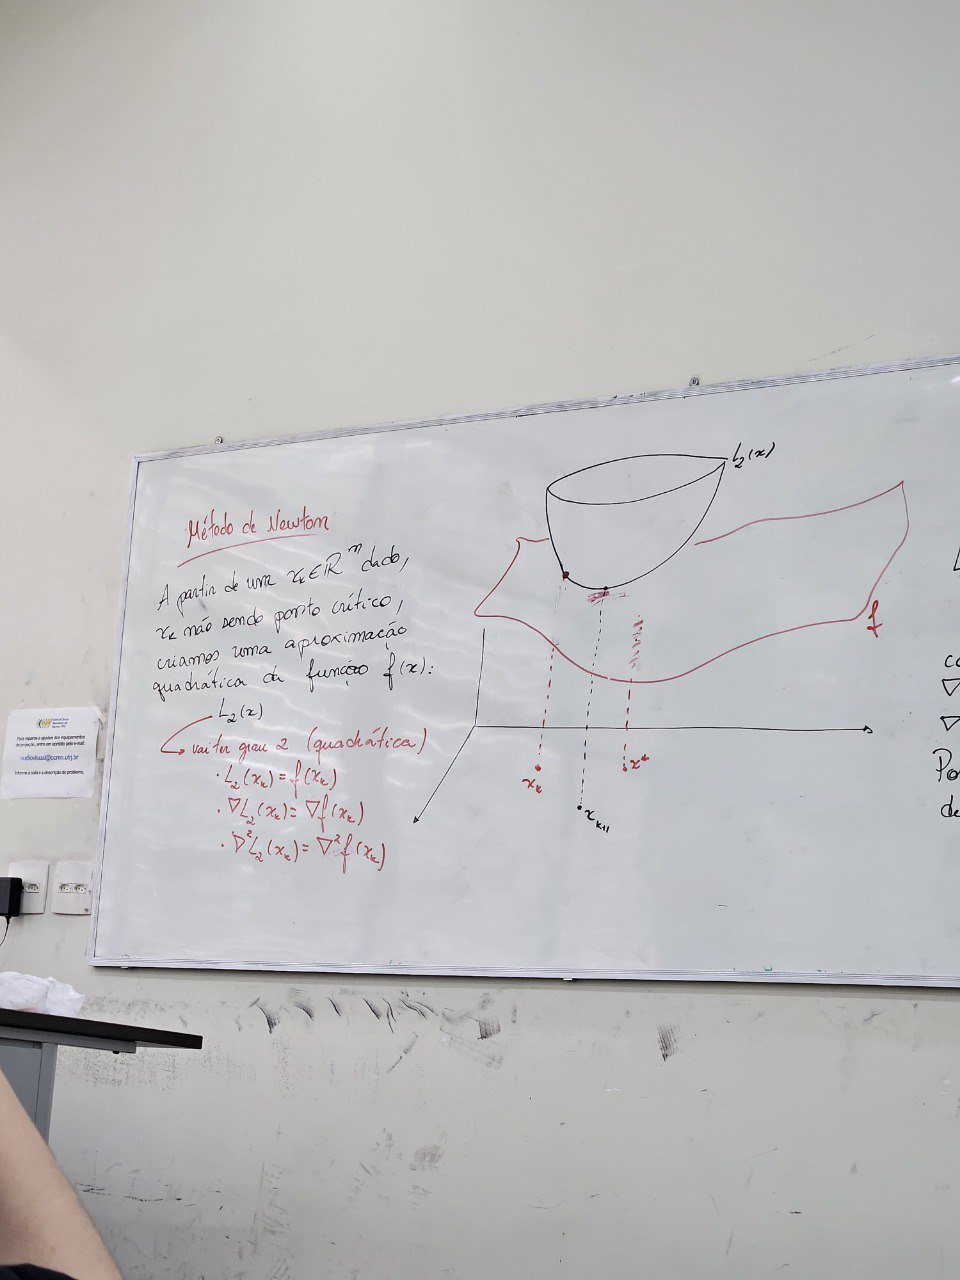 Método de Newton
A partir de um xₖ∈ℝⁿ dado,
xₖ não sendo ponto crítico,
criamos uma aproximação
quadrática da função f(x):
L₂(x)
vai ter grau 2 (quadrática)
· L₂(xₖ) = f(xₖ)
· ∇L₂(xₖ) = ∇f(xₖ)
· ∇²L₂(xₖ) = ∇²f(xₖ)
L₂(x)
f
xₖ
x*
xₖ₊₁
∇
∇
Para reparos e ajustes dos equipamentos
de projeção, entre em contato pelo e-mail:
Informe a sala e a descrição do problema.